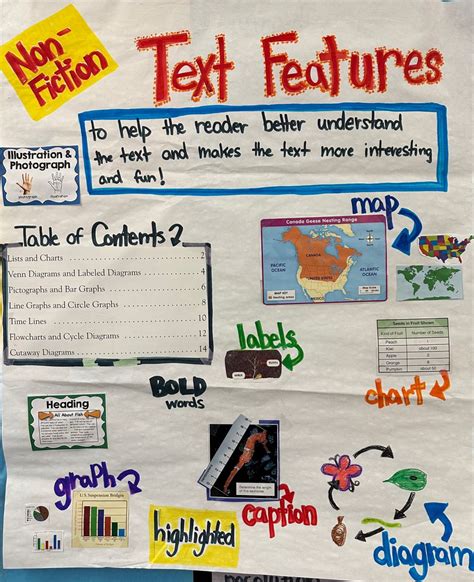 Non-
Fiction
Text Features
to help the reader better understand
the text and makes the text more interesting
and fun!
Illustration &
Photograph
photograph
illustration
map
Canada Geese Nesting Range
PACIFIC
OCEAN
CANADA
ATLANTIC
OCEAN
UNITED STATES
MAP KEY
Nesting areas
Table of Contents
Lists and Charts 2
Venn Diagrams and Labeled Diagrams 4
Pictographs and Bar Graphs 6
Line Graphs and Circle Graphs 8
Time Lines 10
Flowcharts and Cycle Diagrams 12
Cutaway Diagrams 14
labels
Seeds in Fruit Shown
Kind of Fruit Number of Seeds
Peach 1
Kiwi about 100
Apple
Orange
Pumpkin
chart
BOLD
words
Heading
All About Fish
graph
U.S. Suspension Bridges
highlighted
caption
diagram